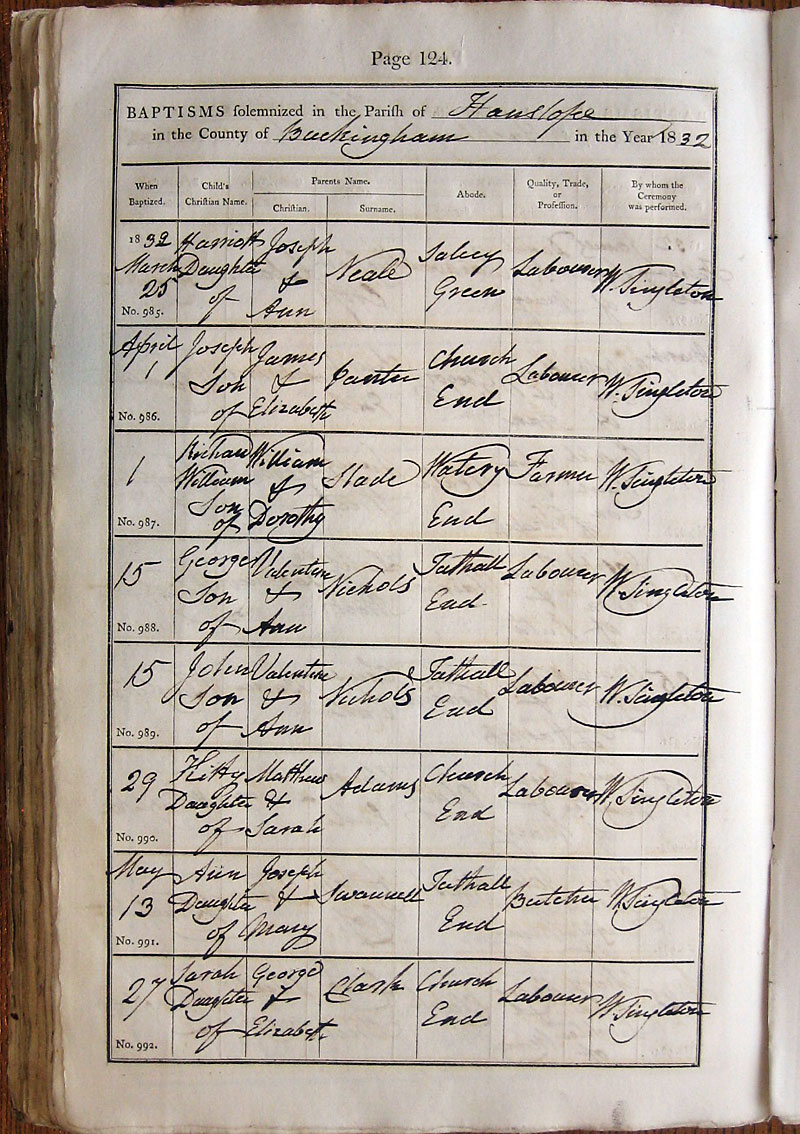 Page 124.
BAPTISMS solemnized in the Parish of Hanslope
in the County of Buckingham in the Year 1832
When Baptized.
Child's Christian Name.
Parents Name.
Christian.
Surname.
Abode.
Quality, Trade, or Profession.
By whom the Ceremony was performed.
1832 March 25 No. 985.
Harriott Daughter of
Joseph & Ann
Neale
Salcey Green
Labourer
W. Singleton
April 1 No. 986.
Joseph Son of
James & Elizabeth
Panter
Church End
Labourer
W. Singleton
1 No. 987.
Richard William Son of
William & Dorothy
Slade
Watery End
Farmer
W. Singleton
15 No. 988.
George Son of
Valentine & Ann
Nichols
Tathall End
Labourer
W. Singleton
15 No. 989.
John Son of
Valentine & Ann
Nichols
Tathall End
Labourer
W. Singleton
29 No. 990.
Kitty Daughter of
Matthew & Sarah
Adams
Church End
Labourer
W. Singleton
May 13 No. 991.
Ann Daughter of
Joseph & Mary
Swannell
Tathall End
Butcher
W. Singleton
27 No. 992.
Sarah Daughter of
George & Elizabeth
Clark
Church End
Labourer
W. Singleton